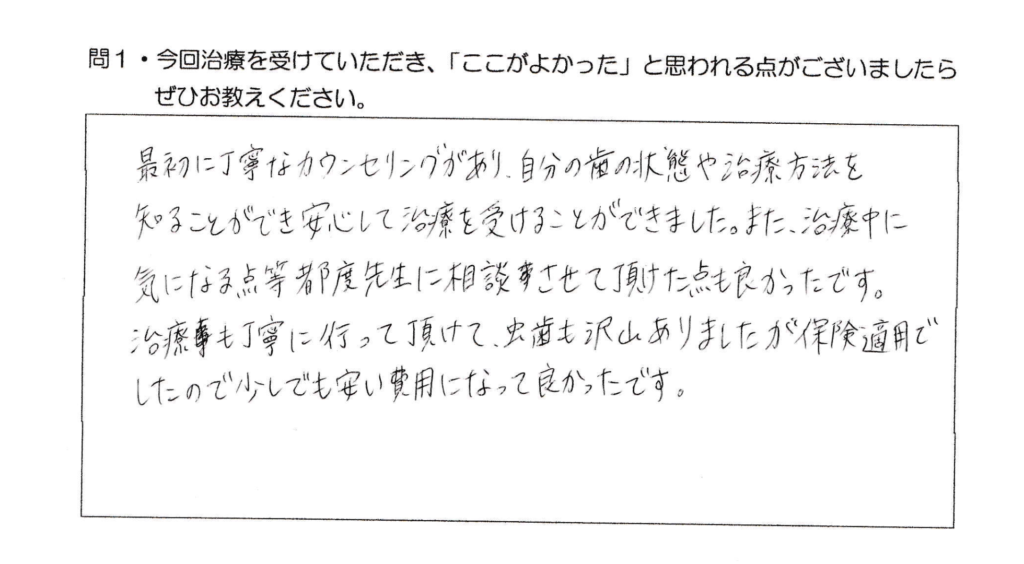 問1・今回治療を受けていただき、「ここがよかった」と思われる点がございましたら
ぜひお教えください。
最初に丁寧なカウンセリングがあり、自分の歯の状態や治療方法を
知ることができ安心して治療を受けることができました。また、治療中に
気になる点等都度先生に相談させて頂けた点も良かったです。
治療も丁寧に行って頂けて、虫歯も沢山ありましたが保険適用で
したので少しでも安い費用になって良かったです。